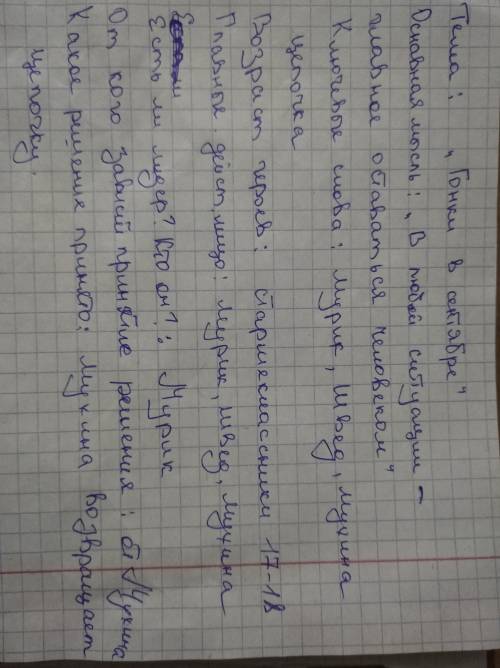 Тема: „Гонки в сентябре"
Основная мысль: „В любой ситуации –
главное оставаться человеком"
Ключевые слова: Мурик, Швед, Мухина
цепочка
Возраст героев: старшеклассники 17-18
Главные дейст, лицо: Мурик, Швед, Мухина
Есть ли лидер? Кто он?: Мурик
От кого зависит принятие решения: от Мухина
Какое решение принято: Мухина возвращает
цепочку.